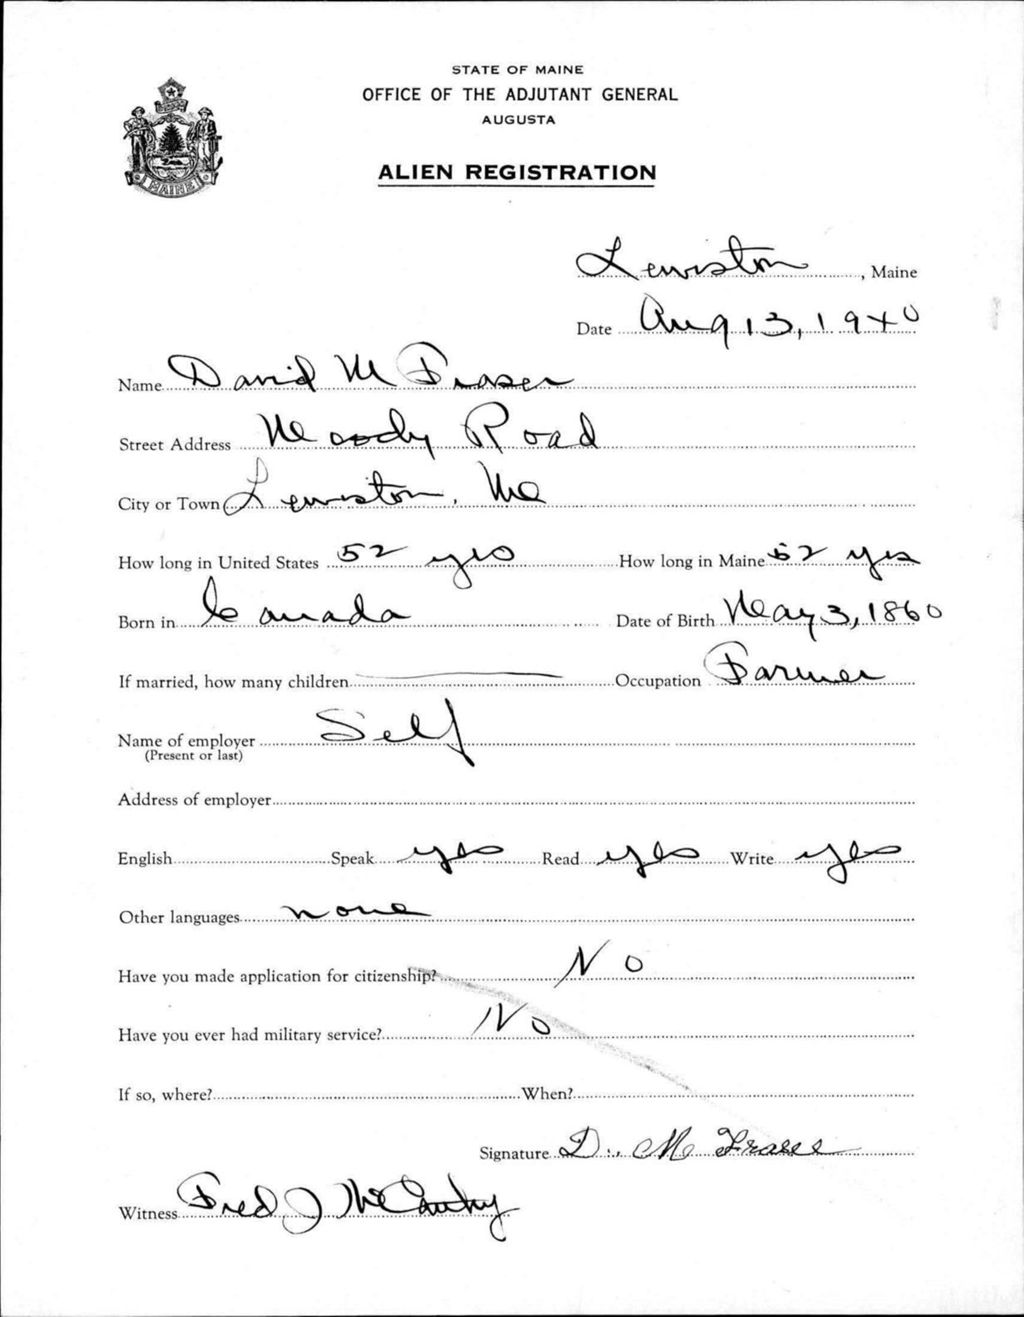 STATE OF MAINE
OFFICE OF THE ADJUTANT GENERAL
AUGUSTA
ALIEN REGISTRATION
MAINE
Lewiston, Maine
Date Aug 13, 1940
Name David M Fraser
Street Address Moody Road
City or Town Lewiston, Me
How long in United States 52 yrs How long in Maine 52 yrs
Born in Canada Date of Birth May 3, 1860
If married, how many children Occupation Farmer
Name of employer Self
(Present or last)
Address of employer
English Speak yes Read yes Write yes
Other languages none
Have you made application for citizenship? No
Have you ever had military service? No
If so, where? When?
Signature D. M Fraser
Witness Fred J McCarthy